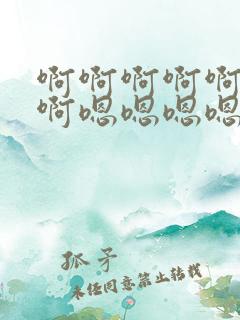 啊啊啊啊啊
啊嗯嗯嗯嗯
孤矛
未经同意禁止转载